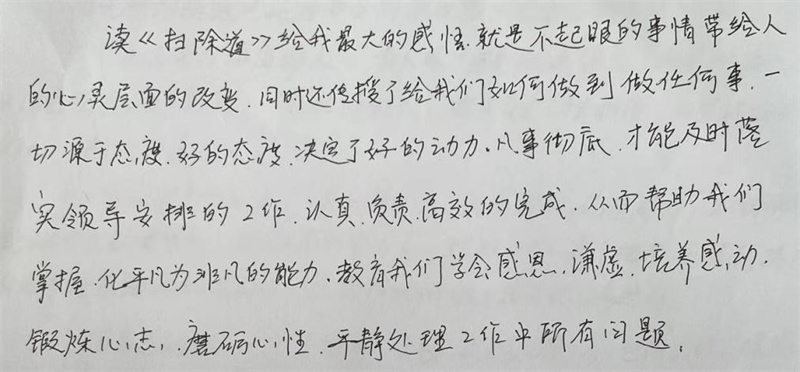 读《扫除道》给我最大的感悟.就是不起眼的事情带给人
的心灵层面的改变.同时还传授了给我们如何做到做任何事.一
切源于态度.好的态度.决定了好的动力.凡事彻底.才能及时落
实领导安排的工作.认真.负责.高效的完成.从而帮助我们
掌握.化平凡为非凡的能力.教育我们学会感恩.谦虚.培养感动.
锻炼心志.磨砺心性.平静处理工作中所有问题.